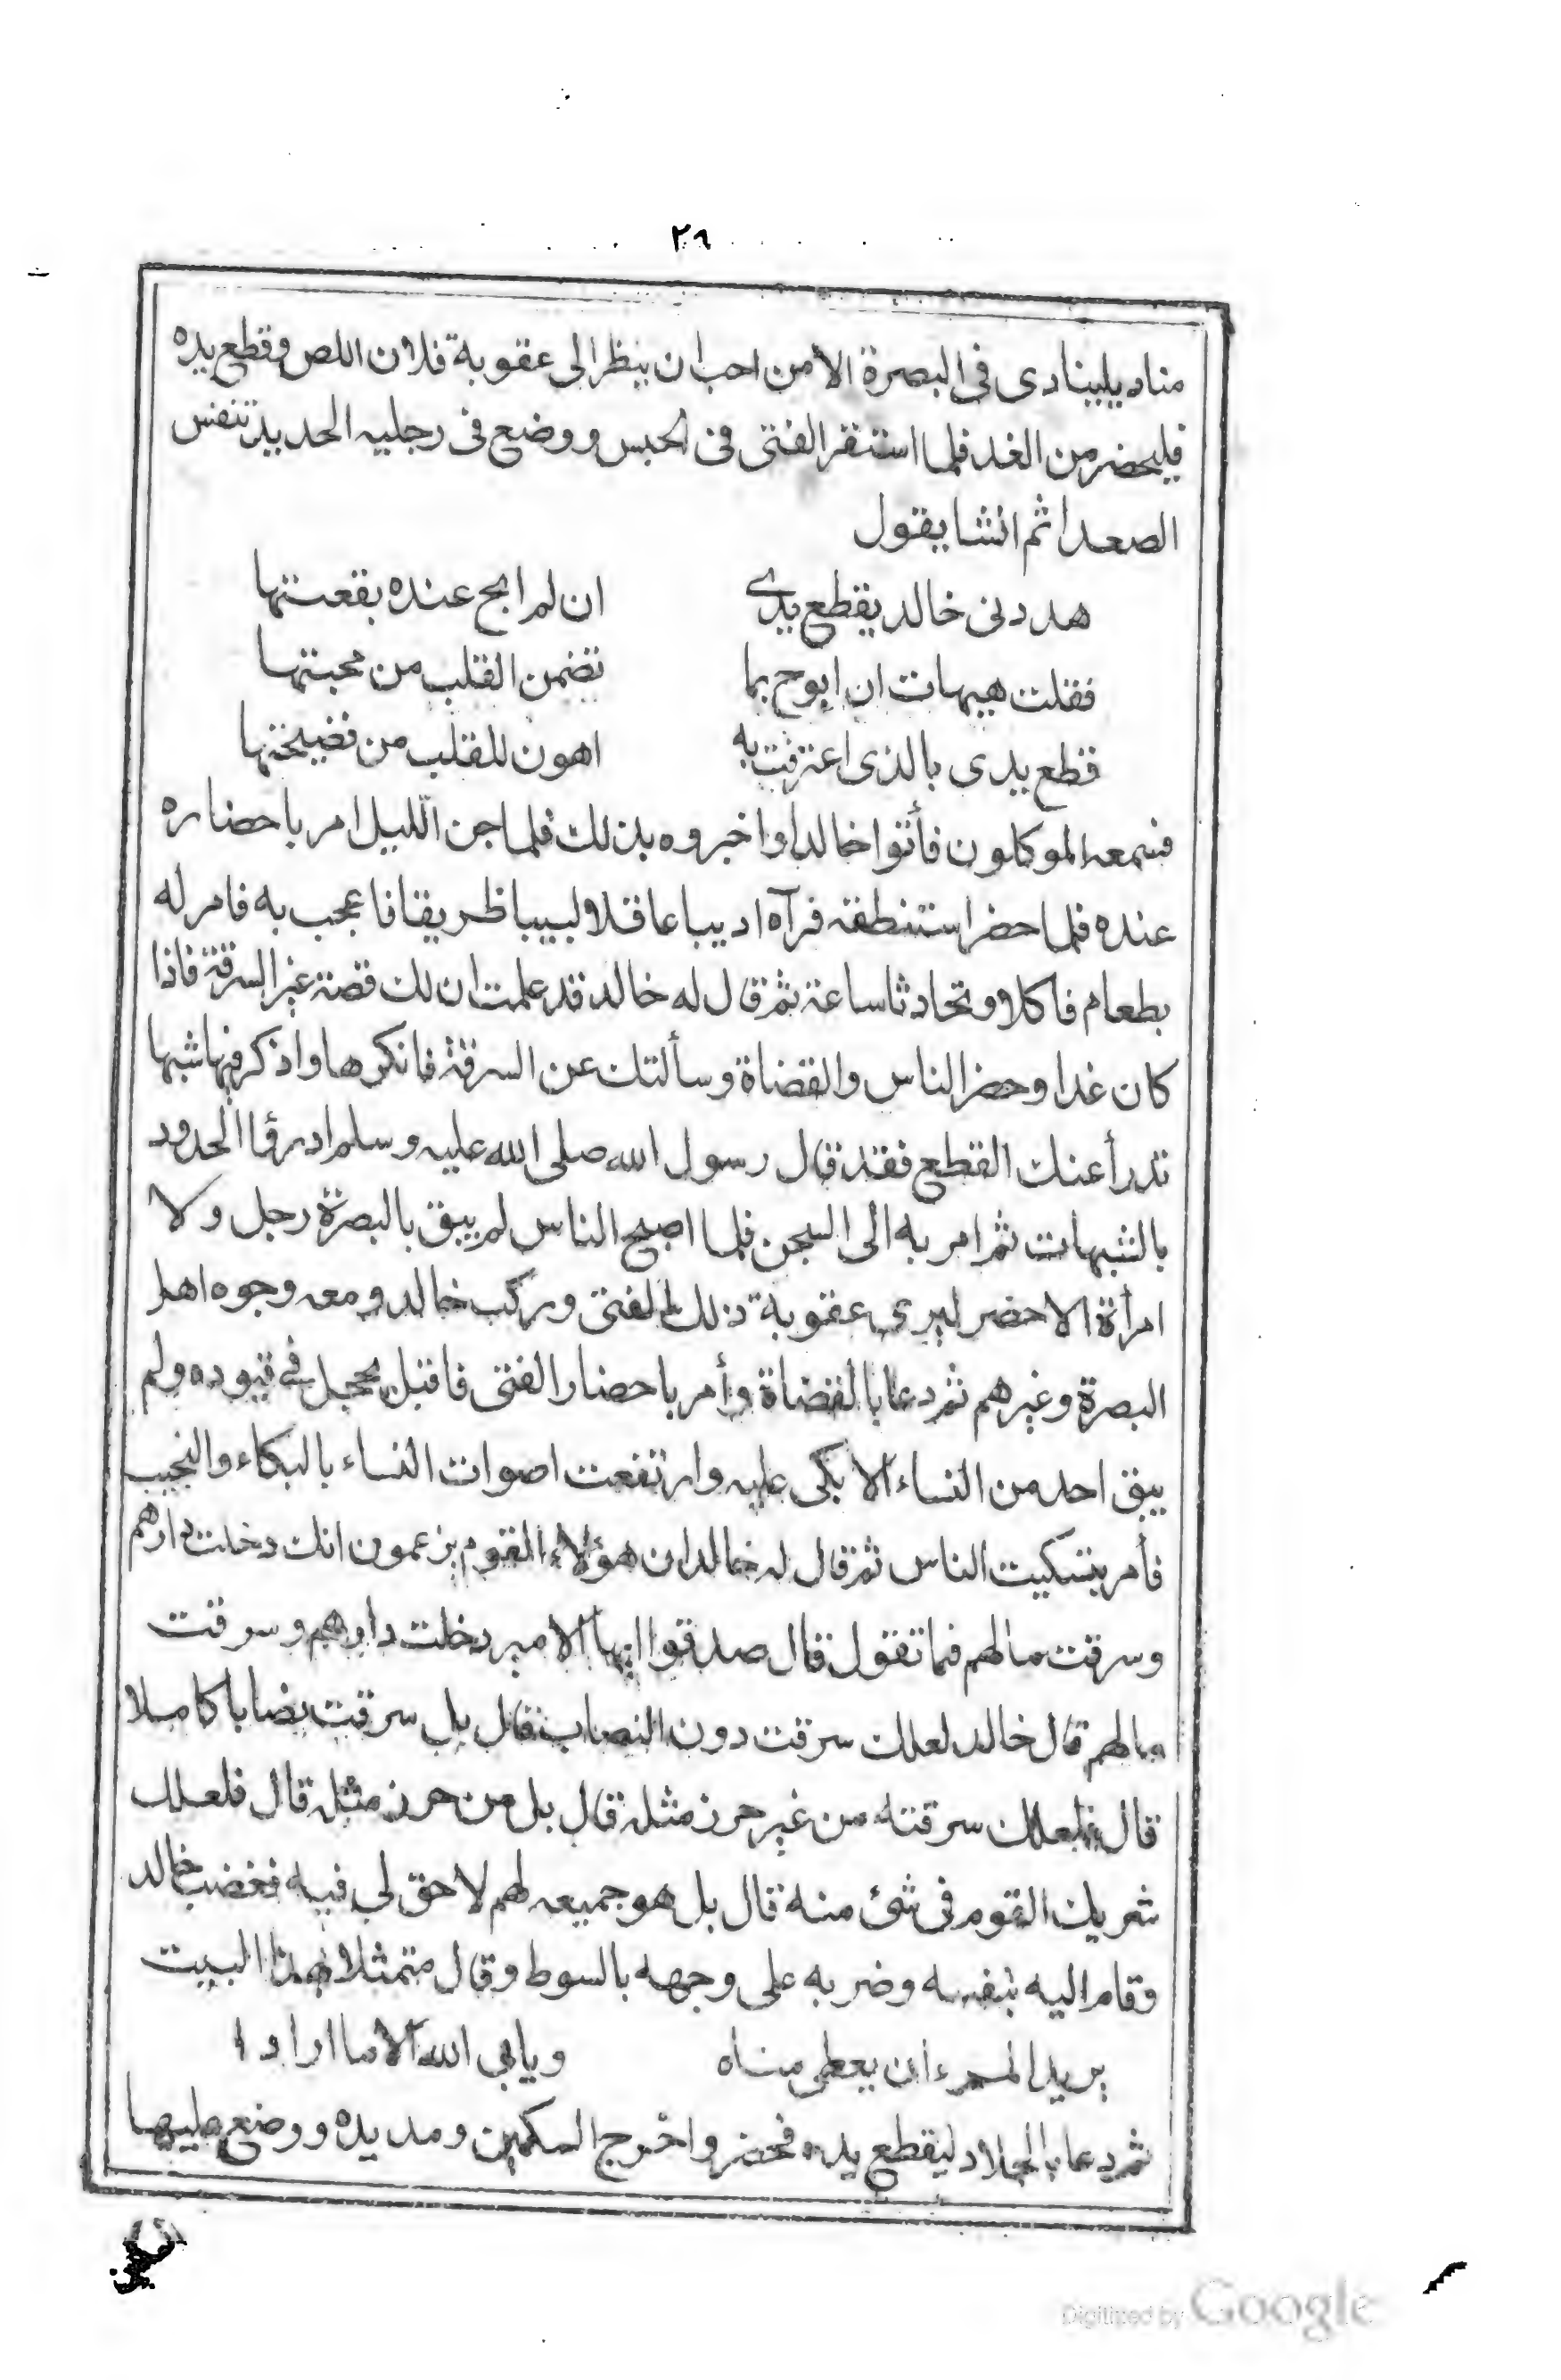 ٢٩
مناد يلينادى فى البصرة الا من احب ان ينظر الى عقوبة فلان اللص وقطع يده
فليحضر من الغد فلما استقر الفتى فى الحبس ووضع فى رجليه الحديد تنفس
الصعدا ثم انشا يقول
هددنى خالد بقطع يدى ان لم ابح عنده بقصتها
فقلت هيهات ان ابوح بما تضمن القلب من محبتها
قطع يدى بالذى اعترفت به اهون للقلب من فضيحتها
فسمعه الموكلون فأتوا خالدا واخبروه بذلك فلما جن الليل امر باحضاره
عنده فلما حضر استنطقه فرآه اديبا عاقلا لبيبا ظريفا فاعجب به فامر له
بطعام فاكلا وتحادثا ساعة ثم قال له خالد قد علمت ان لك قصة غير السرقة فاذا
كان غدا وحضر الناس والقضاة وسألتك عن السرقة فانكرها واذكر فيها شبها
تدرأ عنك القطع فقد قال رسول الله صلى الله عليه وسلم ادرؤا الحدود
بالشبهات ثم امر به الى السجن فلما اصبح الناس لم يبق بالبصرة رجل ولا
امرأة الا حضر ليرى عقوبة ذلك الفتى وركب خالد ومعه وجوه اهل
البصرة وغيرهم ثم دعا بالقضاة وأمر باحضار الفتى فاقبل يحجل فى قيوده ولم
يبق احد من النساء الا بكى عليه وارتفعت اصوات النساء بالبكاء والنحيب
فأمر بتسكيت الناس ثم قال له خالد ان هؤلاء القوم يزعمون انك دخلت دارهم
وسرقت مالهم فما تقول قال صدقوا ايها الامير دخلت دارهم وسرقت
مالهم قال خالد لعلك سرقت دون النصاب قال بل سرقت نصابا كاملا
قال فلعلك سرقته من غير حرز مثله قال بل من حرز مثله قال فلعلك
شريك القوم فى شئ منه قال بل هو جميعه لهم لا حق لى فيه فغضب خالد
وقام اليه بنفسه وضربه على وجهه بالسوط وقال متمثلا بهذا البيت
يريد المرء ان يعطى مناه ويابى الله الا ما ارادا
ثم دعا بالجلاد ليقطع يده فحضر واخرج السكين ومد يده ووضع عليها
Digitized by Google